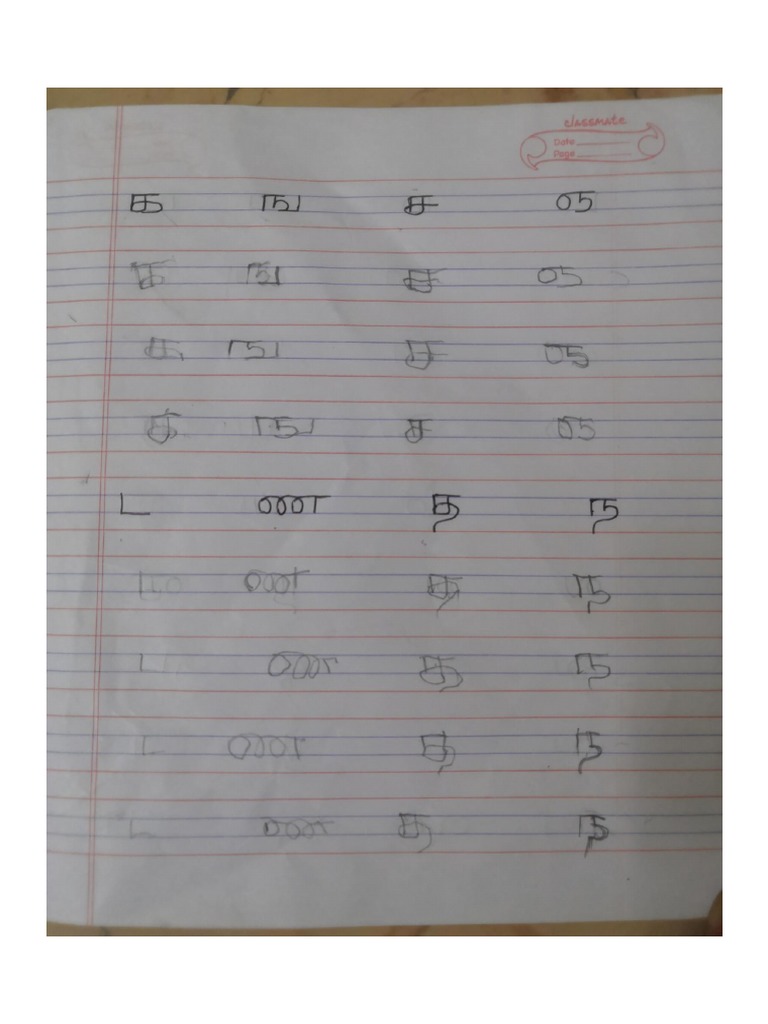 classmate
Date
Page
க ங ச ஞ
க ங ச ஞ
க ங ச ஞ
க ங ச ஞ
ட ண த ந
ட ண த ந
ட ண த ந
ட ண த ந
ட ண த ந